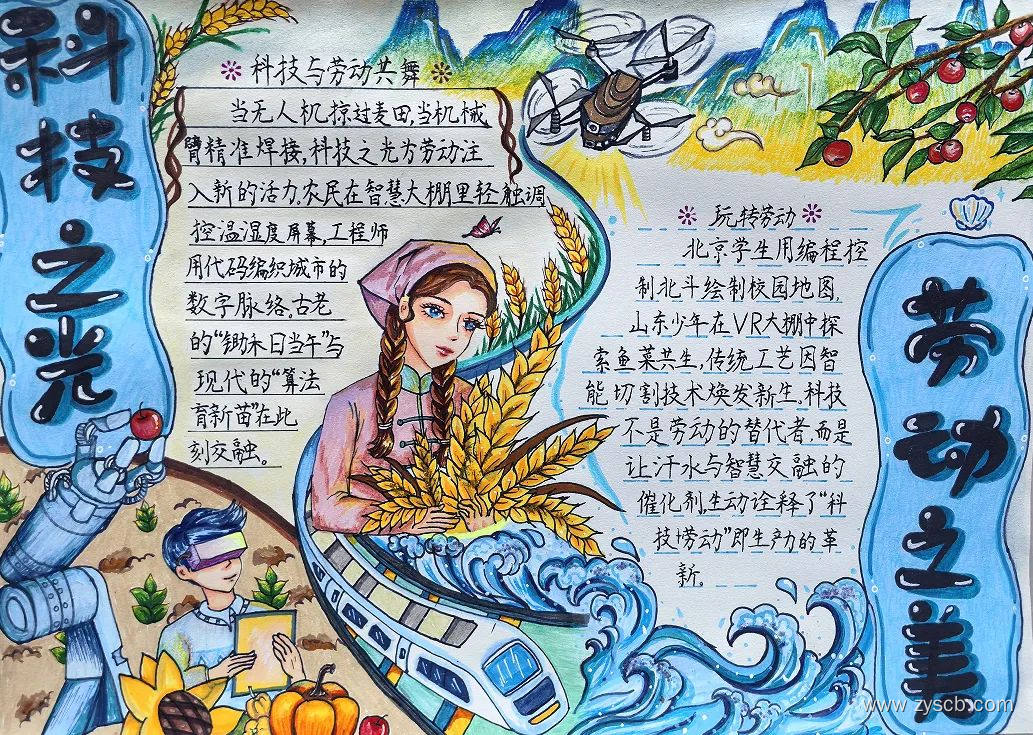 科技之光
科技与劳动共舞
当无人机掠过麦田,当机械
臂精准焊接,科技之光为劳动注
入新的活力。农民在智慧大棚里轻触调
控温湿度屏幕,工程师
用代码编织城市的
数字脉络,古老
的“锄禾日当午”与
现代的“算法
育新苗”在此
刻交融。
玩转劳动
北京学生用编程控
制北斗绘制校园地图,
山东少年在VR大棚中探
索鱼菜共生,传统工艺因智
能切割技术焕发新生,科技
不是劳动的替代者,而是
让汗水与智慧交融的
催化剂,生动诠释了“科
技+劳动”即生产力的革
新。
劳动之美
www.zyscb.com